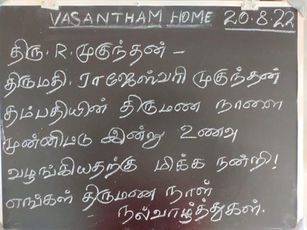 VASANTHAM HOME 20.8.22
திரு. R. முகுந்தன் -
திருமதி. ராஜேஸ்வரி முகுந்தன்
தம்பதியின் திருமண நாளை
முன்னிட்டு இன்று உணவு
வழங்கியதற்கு மிக்க நன்றி!
எங்கள் திருமண நாள்
நல்வாழ்த்துகள்.